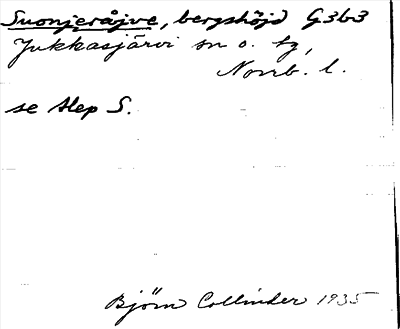 Suonjeråjve, bergshöjd G3b3
Jukkasjärvi sn o. tg,
Norrb. l.
se Alep S.
Björn Collinder 1935